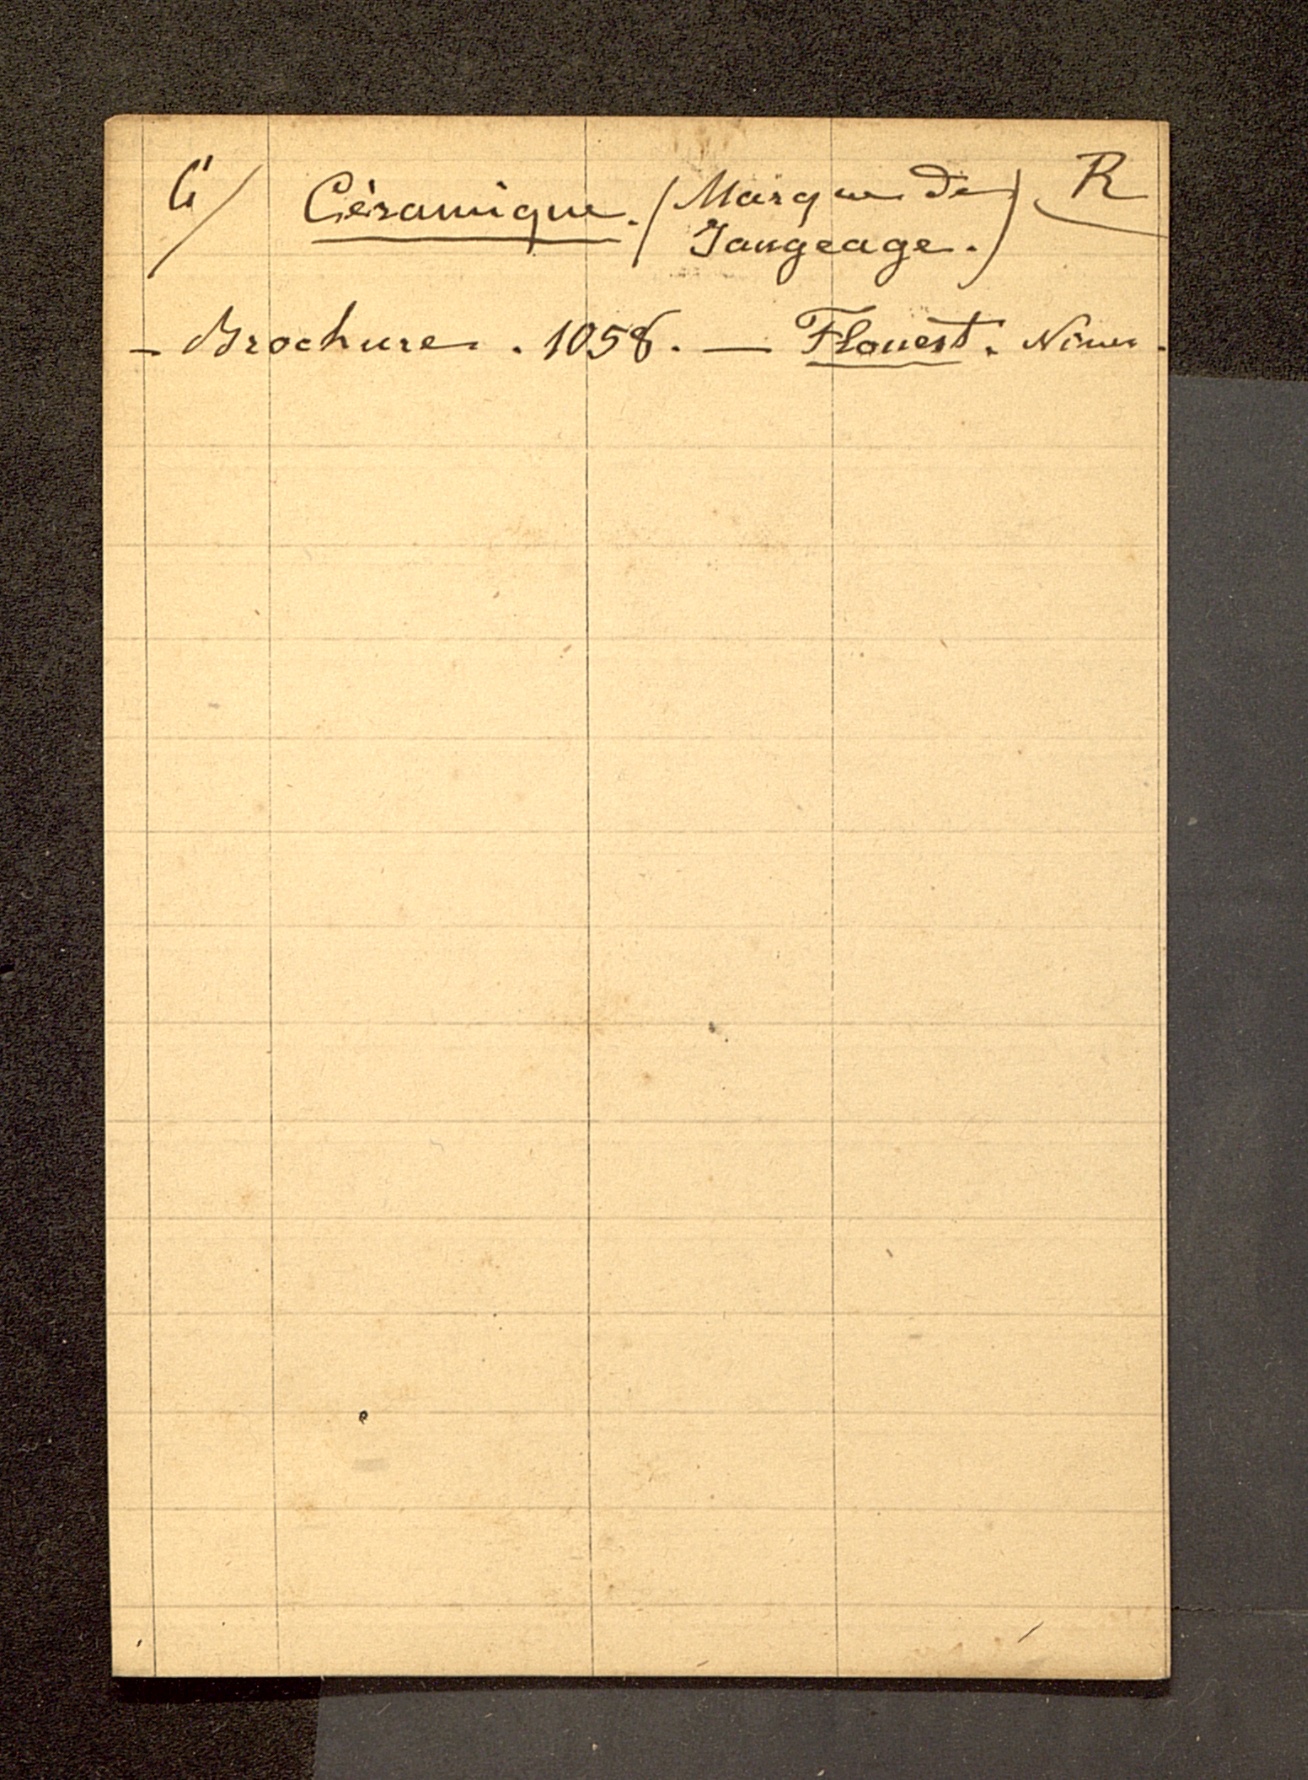 G/ Céramique. (Marque de R
Jaugeage.)
- Brochure. 1058. — Flouest. Nîmes.